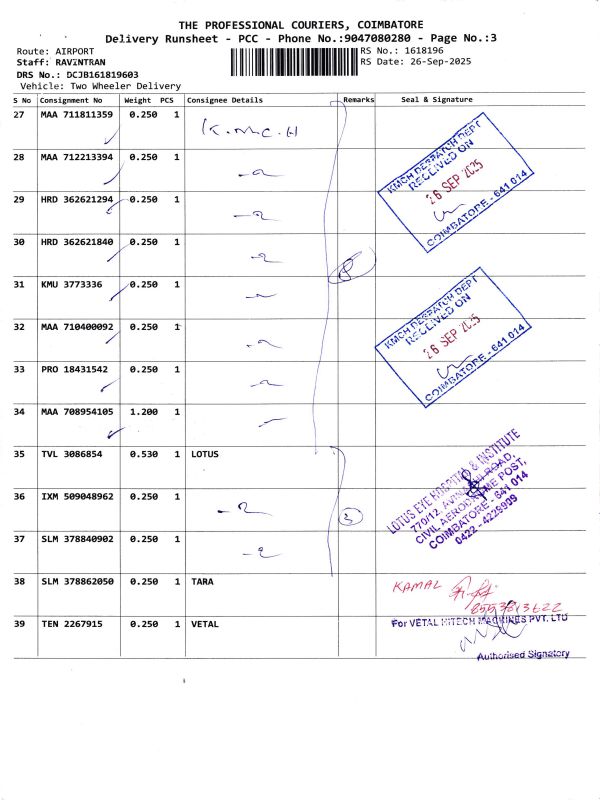 THE PROFESSIONAL COURIERS, COIMBATORE
Delivery Runsheet - PCC - Phone No.:9047080280 - Page No.:3
Route: AIRPORT
RS No.: 1618196
Staff: RAVINTRAN
RS Date: 26-Sep-2025
DRS No.: DCJB161819603
Vehicle: Two Wheeler Delivery
S No Consignment No Weight PCS Consignee Details Remarks Seal & Signature
27 MAA 711811359 0.250 1 K.M.C.H
28 MAA 712213394 0.250 1
29 HRD 362621294 0.250 1
30 HRD 362621840 0.250 1
31 KMU 3773336 0.250 1
32 MAA 710400092 0.250 1
33 PRO 18431542 0.250 1
34 MAA 708954105 1.200 1
35 TVL 3086854 0.530 1 LOTUS
36 IXM 509048962 0.250 1
37 SLM 378840902 0.250 1
38 SLM 378862050 0.250 1 TARA
39 TEN 2267915 0.250 1 VETAL
8
3
KMCH DESPATCH DEPT
RECEIVED ON
26 SEP 2025
COIMBATORE - 641 014
KMCH DESPATCH DEPT
RECEIVED ON
26 SEP 2025
COIMBATORE - 641 014
LOTUS EYE HOSPITAL & INSTITUTE
770/12, ROAD,
CIVIL AERODROME POST,
COIMBATORE - 641 014
0422 - 4229909
KAMAL
For VETAL HITECH MACHINES PVT. LTD
Authorised Signatory